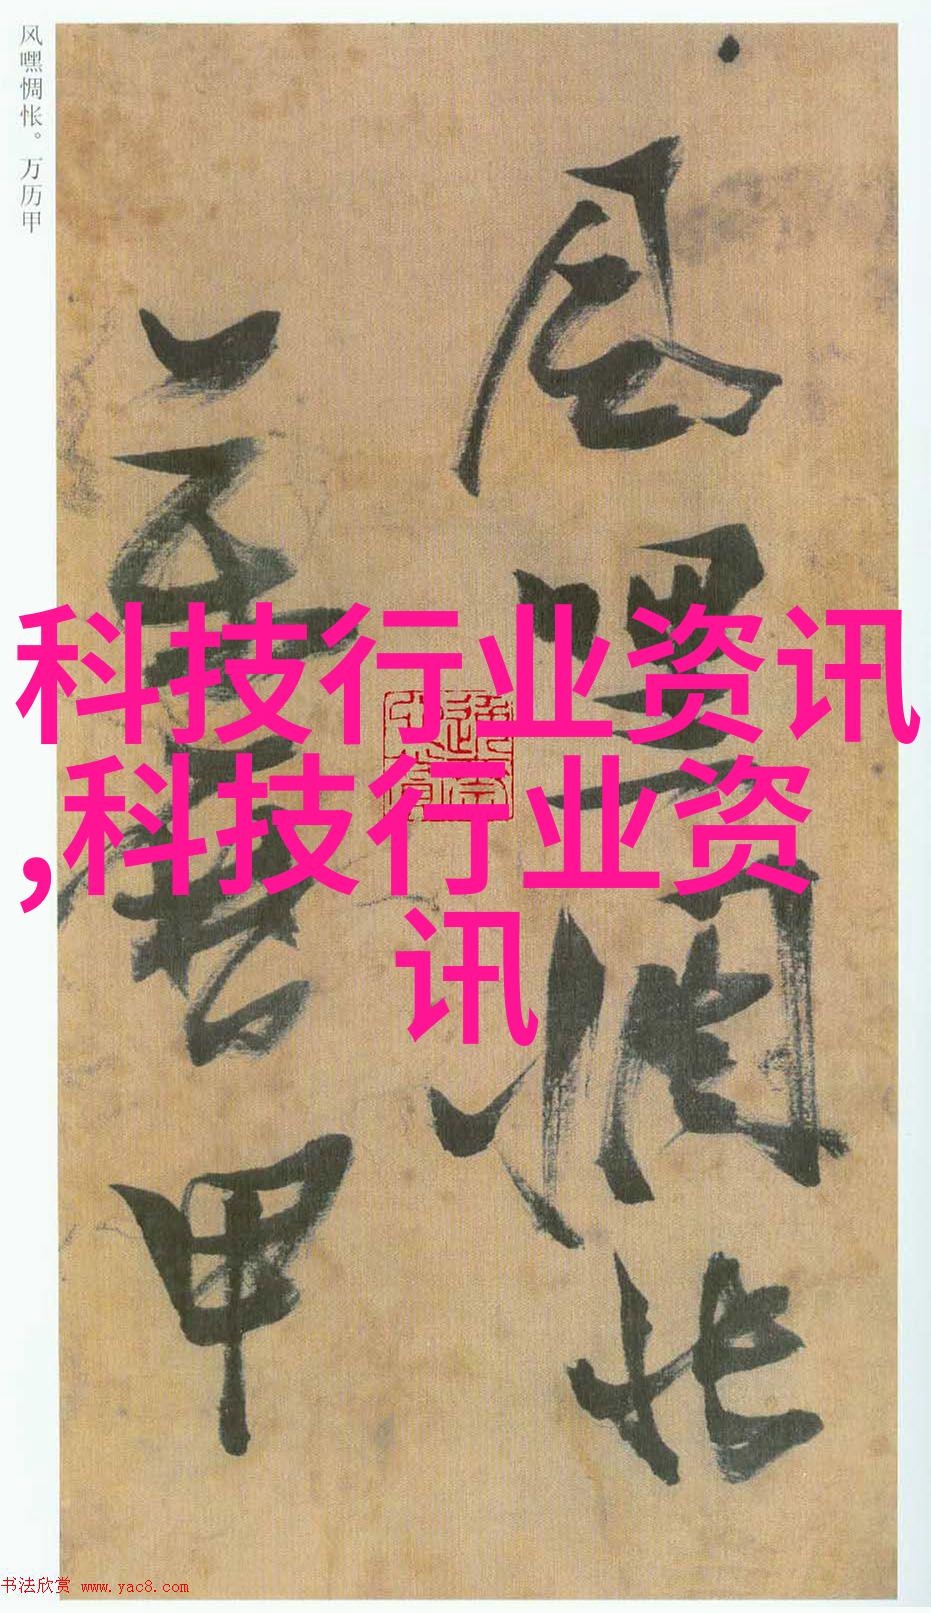 风嘿惆怅。万历甲
风嘿惆怅
万历甲
科技行业资讯
,科技行业资
讯
书法欣赏 www.yac8.com